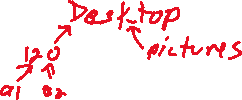 Desktop
120
pictures
a1 02